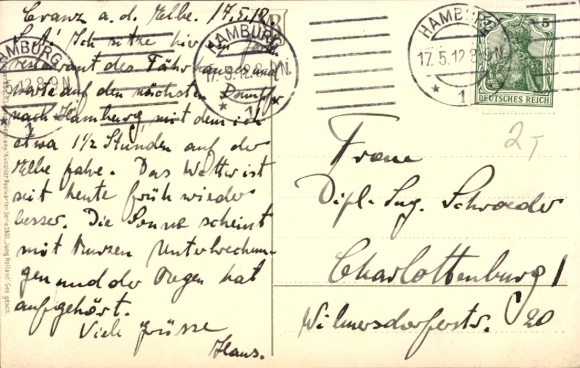 Cranz a. d. Elbe. 17.5.12
L. A.! Ich sitze hier im
restaurant des Fährhauses und
warte auf den nächsten Dampfer
nach Hamburg, mit dem ich
etwa 1 1/2 Stunden auf der
Elbe fahre. Das Wetter ist
seit heute früh wieder
besser. Die Sonne scheint
mit kurzen Unterbrechun-
gen und der Regen hat
aufgehört.
Viele Grüsse
Hans.
HAMBURG
17.5.12 8-9N.
* 1
HAMBURG
17.5.12 8-9N.
* 1
HAMBURG
17.5.12 8-9N.
* 1
5
DEUTSCHES REICH
2,-
Frau
Dipl.-Ing. Schroeder
Charlottenburg 1
Wilmersdorferstr. 20